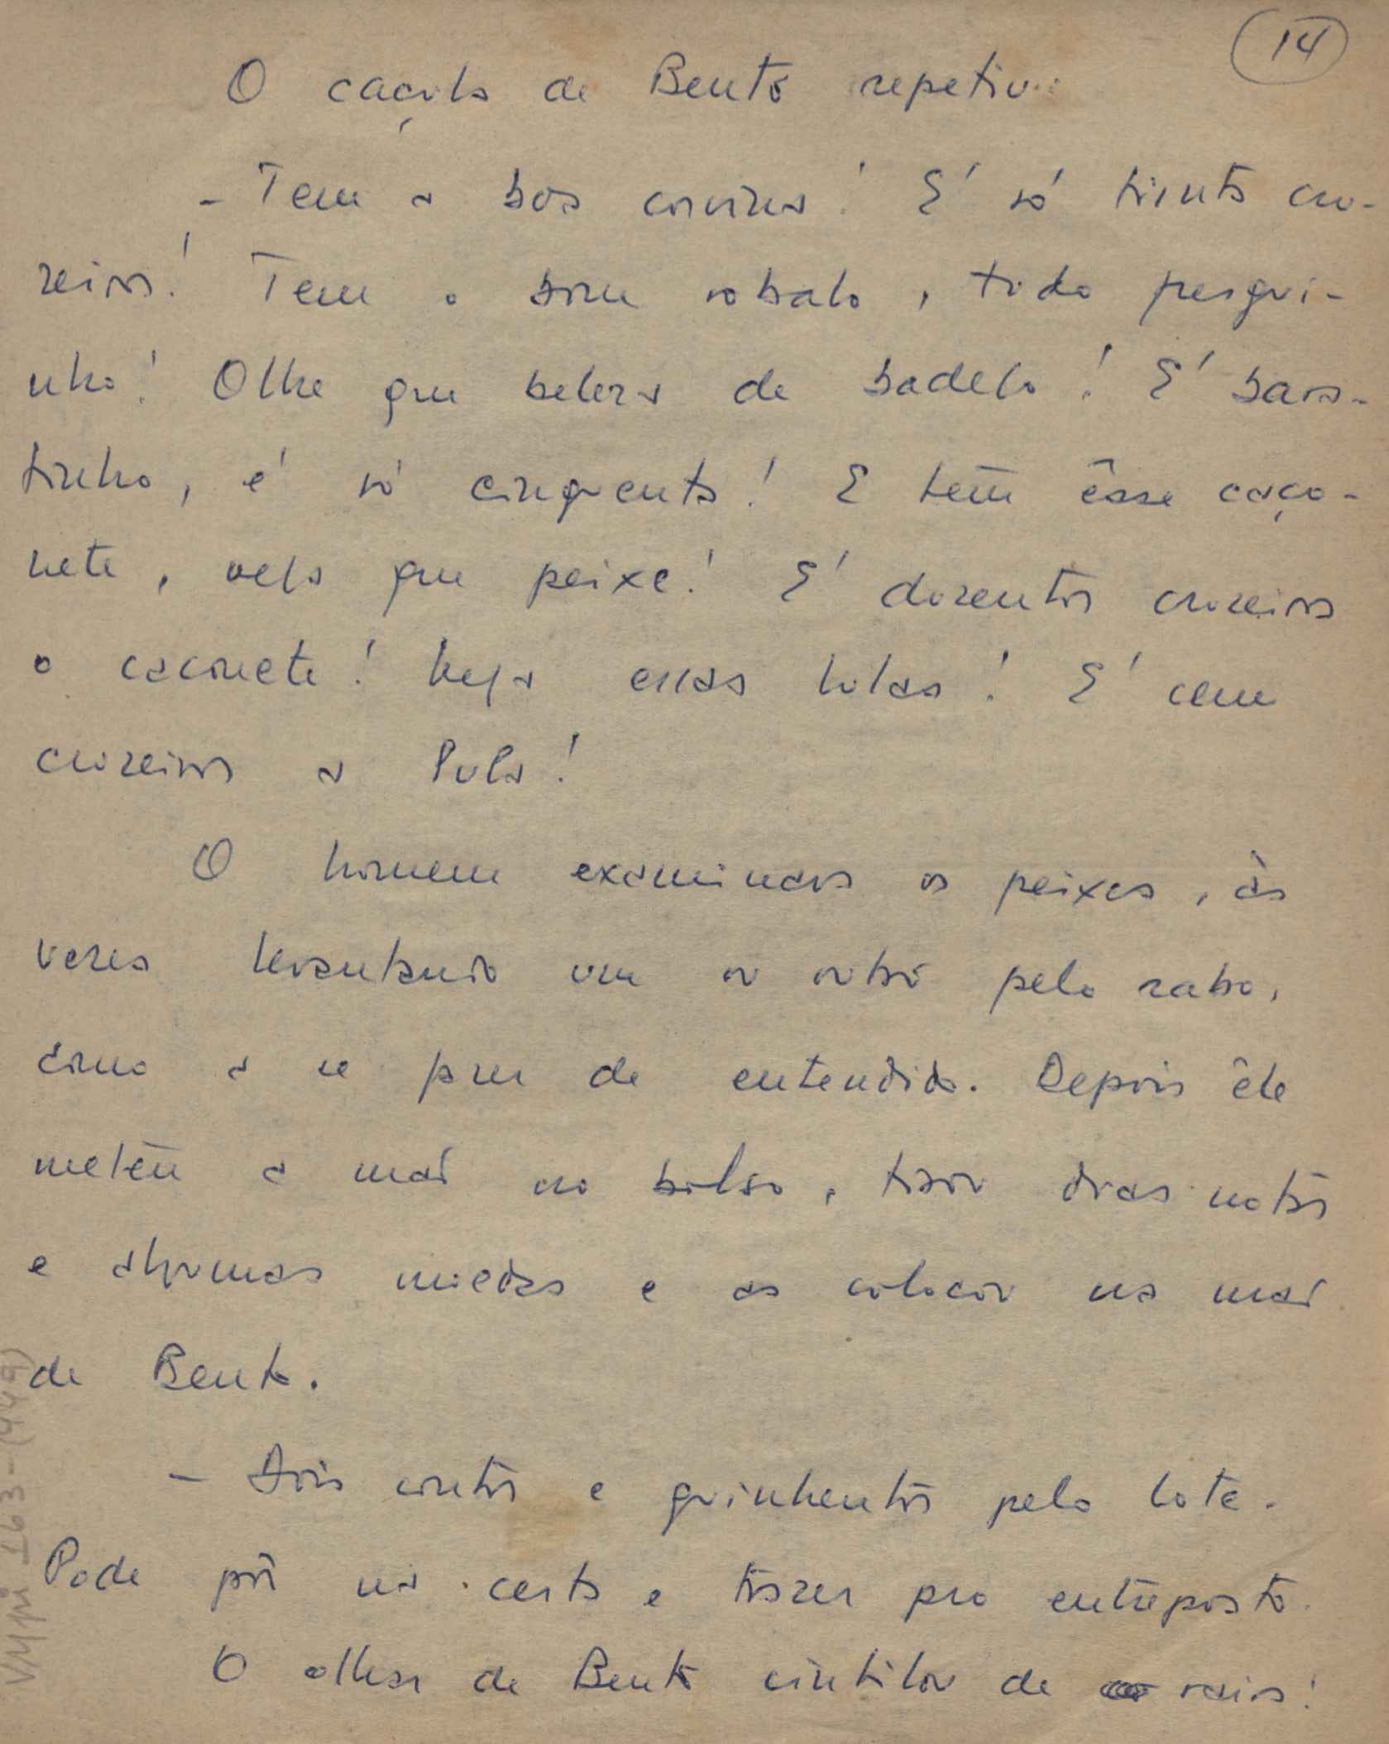 14
O caçula de Bento repetiu:
- Tem a boa corvina! É só trinta cru-
zeiros! Tem o bom robalo, tudo fresqui-
nho! Olhe que beleza de badelo! É bara-
tinho, é só cinquenta! E tem êsse caço-
nete, veja que peixe! É duzentos cruzeiros
o caconete! Veja essas lulas! É cem
cruzeiros a lula!
O homem examinava os peixes, às
vezes levantando um ou outro pelo rabo,
como a se fazer de entendido. Depois êle
meteu a mão no bolso, tirou duas notas
e algumas moedas e as colocou na mão
de Bento.
- Dois contos e quinhentos pelo lote.
Pode pôr na cesta e trazer pro entreposto.
O olhar de Bento cintilou de raiva!